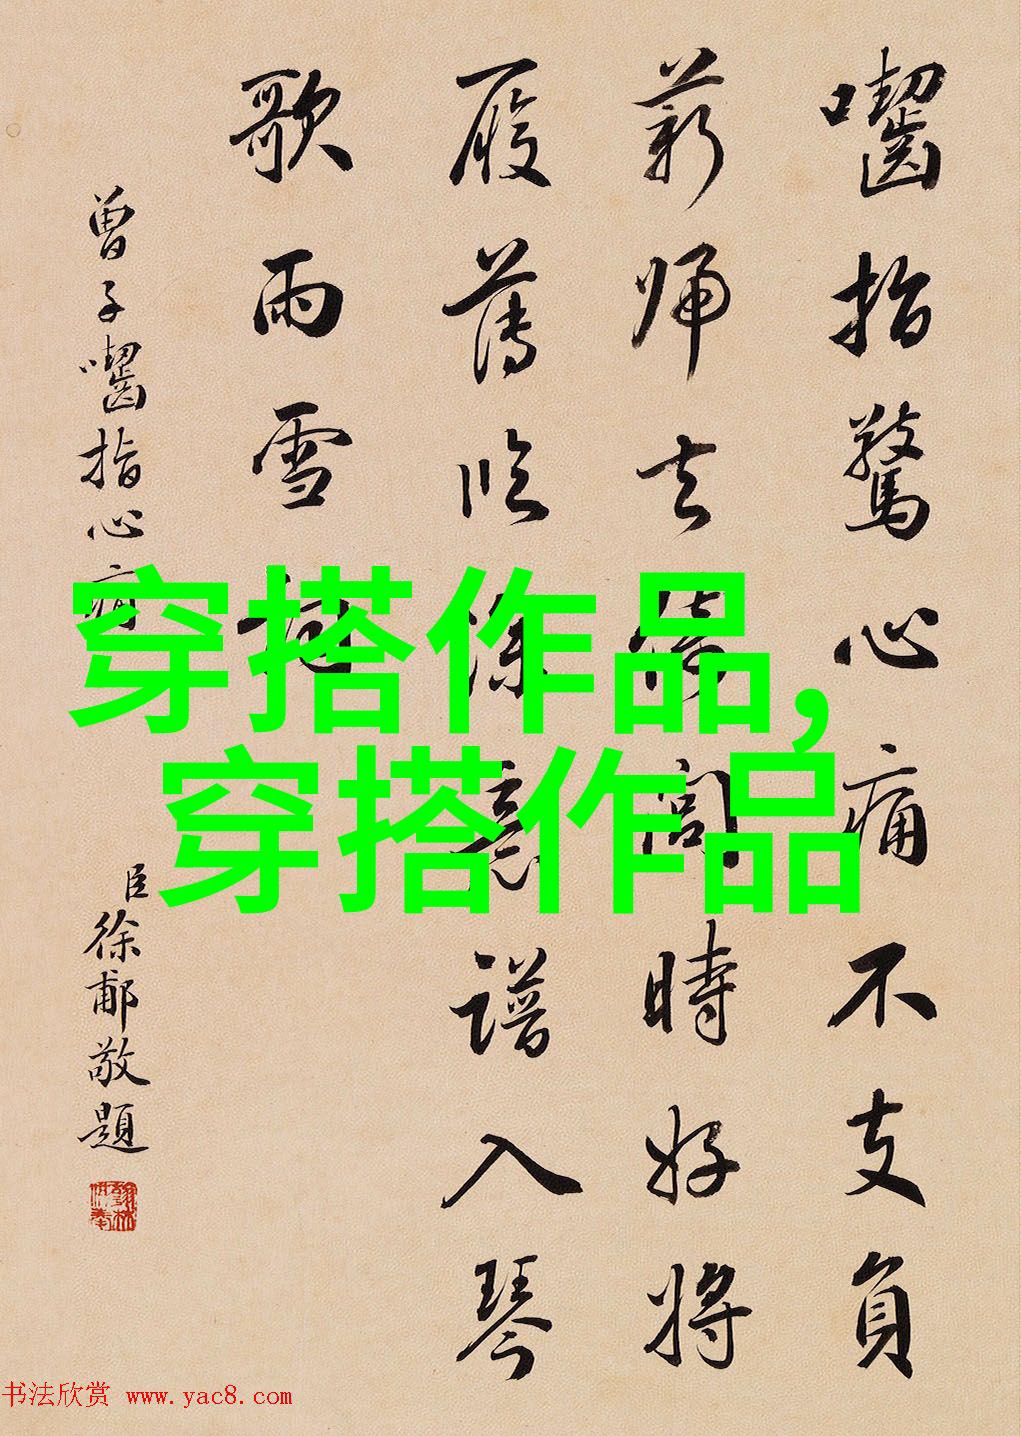 囓指驚心痛不支負
薪歸去倚閭時好將
履薄臨深意譜入琴
歌雨雪
曾子囓指心痛
臣徐郙敬題
穿搭作品,
穿搭作品
书法欣赏 www.yac8.com